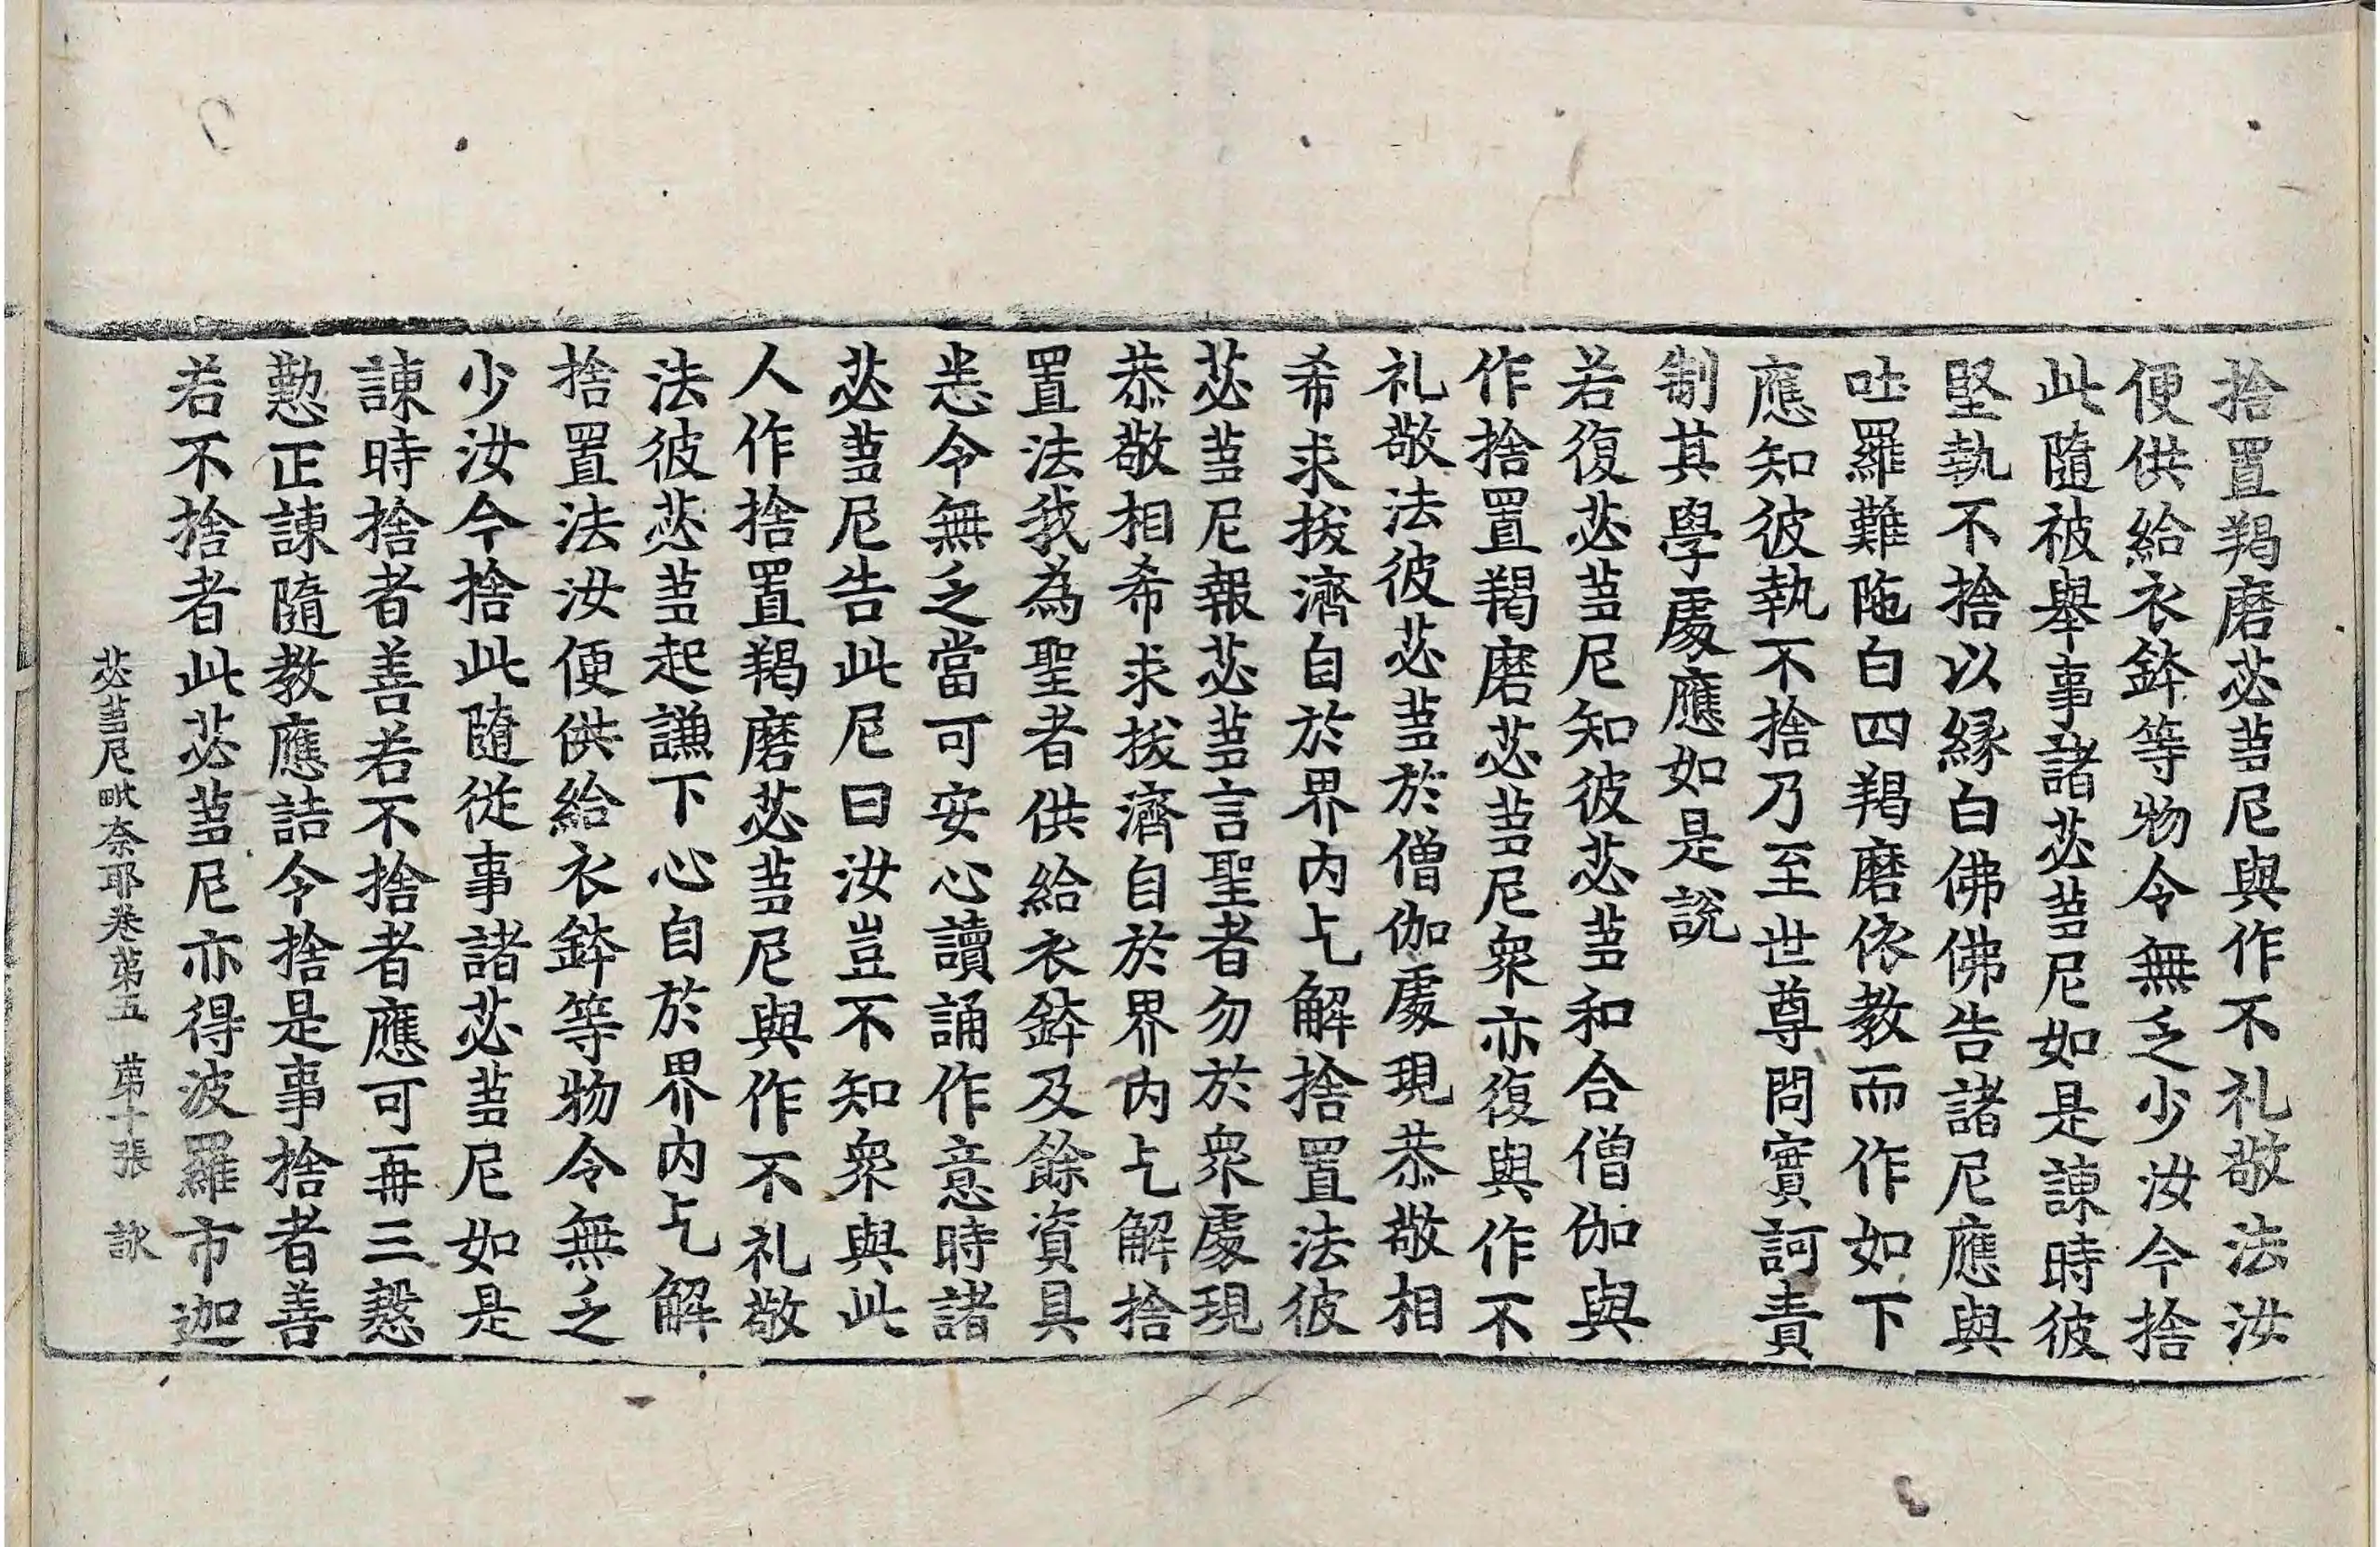 捨置羯磨苾蒭尼與作不礼敬法汝
便供給衣鉢等物令無乏少汝今捨
此隨被舉事諸苾蒭尼如是諫時彼
堅執不捨以緣白佛佛告諸尼應與
吐羅難陁白四羯磨依教而作如下
應知彼執不捨乃至世尊問實訶責
制其學處應如是說
若復苾蒭尼知彼苾蒭和合僧伽與
作捨置羯磨苾蒭尼衆亦復與作不
礼敬法彼苾蒭於僧伽處現恭敬相
希求拔濟自於界內乞解捨置法彼
苾蒭尼報苾蒭言聖者勿於衆處現
恭敬相希求拔濟自於界內乞解捨
置法我為聖者供給衣鉢及餘資具
悉令無乏當可安心讀誦作意時諸
苾蒭尼告此尼曰汝豈不知衆與此
人作捨置羯磨苾蒭尼與作不礼敬
法彼苾蒭起謙下心自於界內乞解
捨置法汝便供給衣鉢等物令無乏
少汝今捨此隨從事諸苾蒭尼如是
諫時捨者善若不捨者應可再三慇
懃正諫隨教應詰令捨是事捨者善
若不捨者此苾蒭尼亦得波羅市迦
苾蒭尼毗奈耶卷第五 第十張 詠